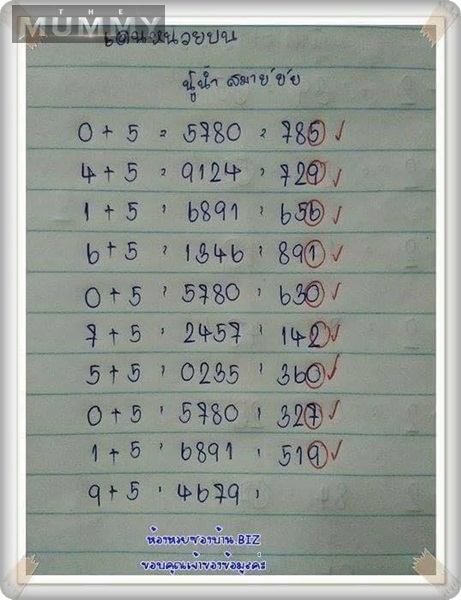 THE
MUMMY
เด่นหน่วยบน
ปูนำ สมาย ชัย
0 + 5 = 5780 = 785 ✓
4 + 5 = 9124 = 729 ✓
1 + 5 = 6891 = 656 ✓
6 + 5 = 1346 = 891 ✓
0 + 5 = 5780 = 630 ✓
7 + 5 = 2457 = 142 ✓
5 + 5 = 0235 = 360 ✓
0 + 5 = 5780 = 327 ✓
1 + 5 = 6891 = 519 ✓
9 + 5 = 4679 =
ห้องหวยชาวบ้าน.BIZ
ขอบคุณเจ้าของข้อมูลค่ะ